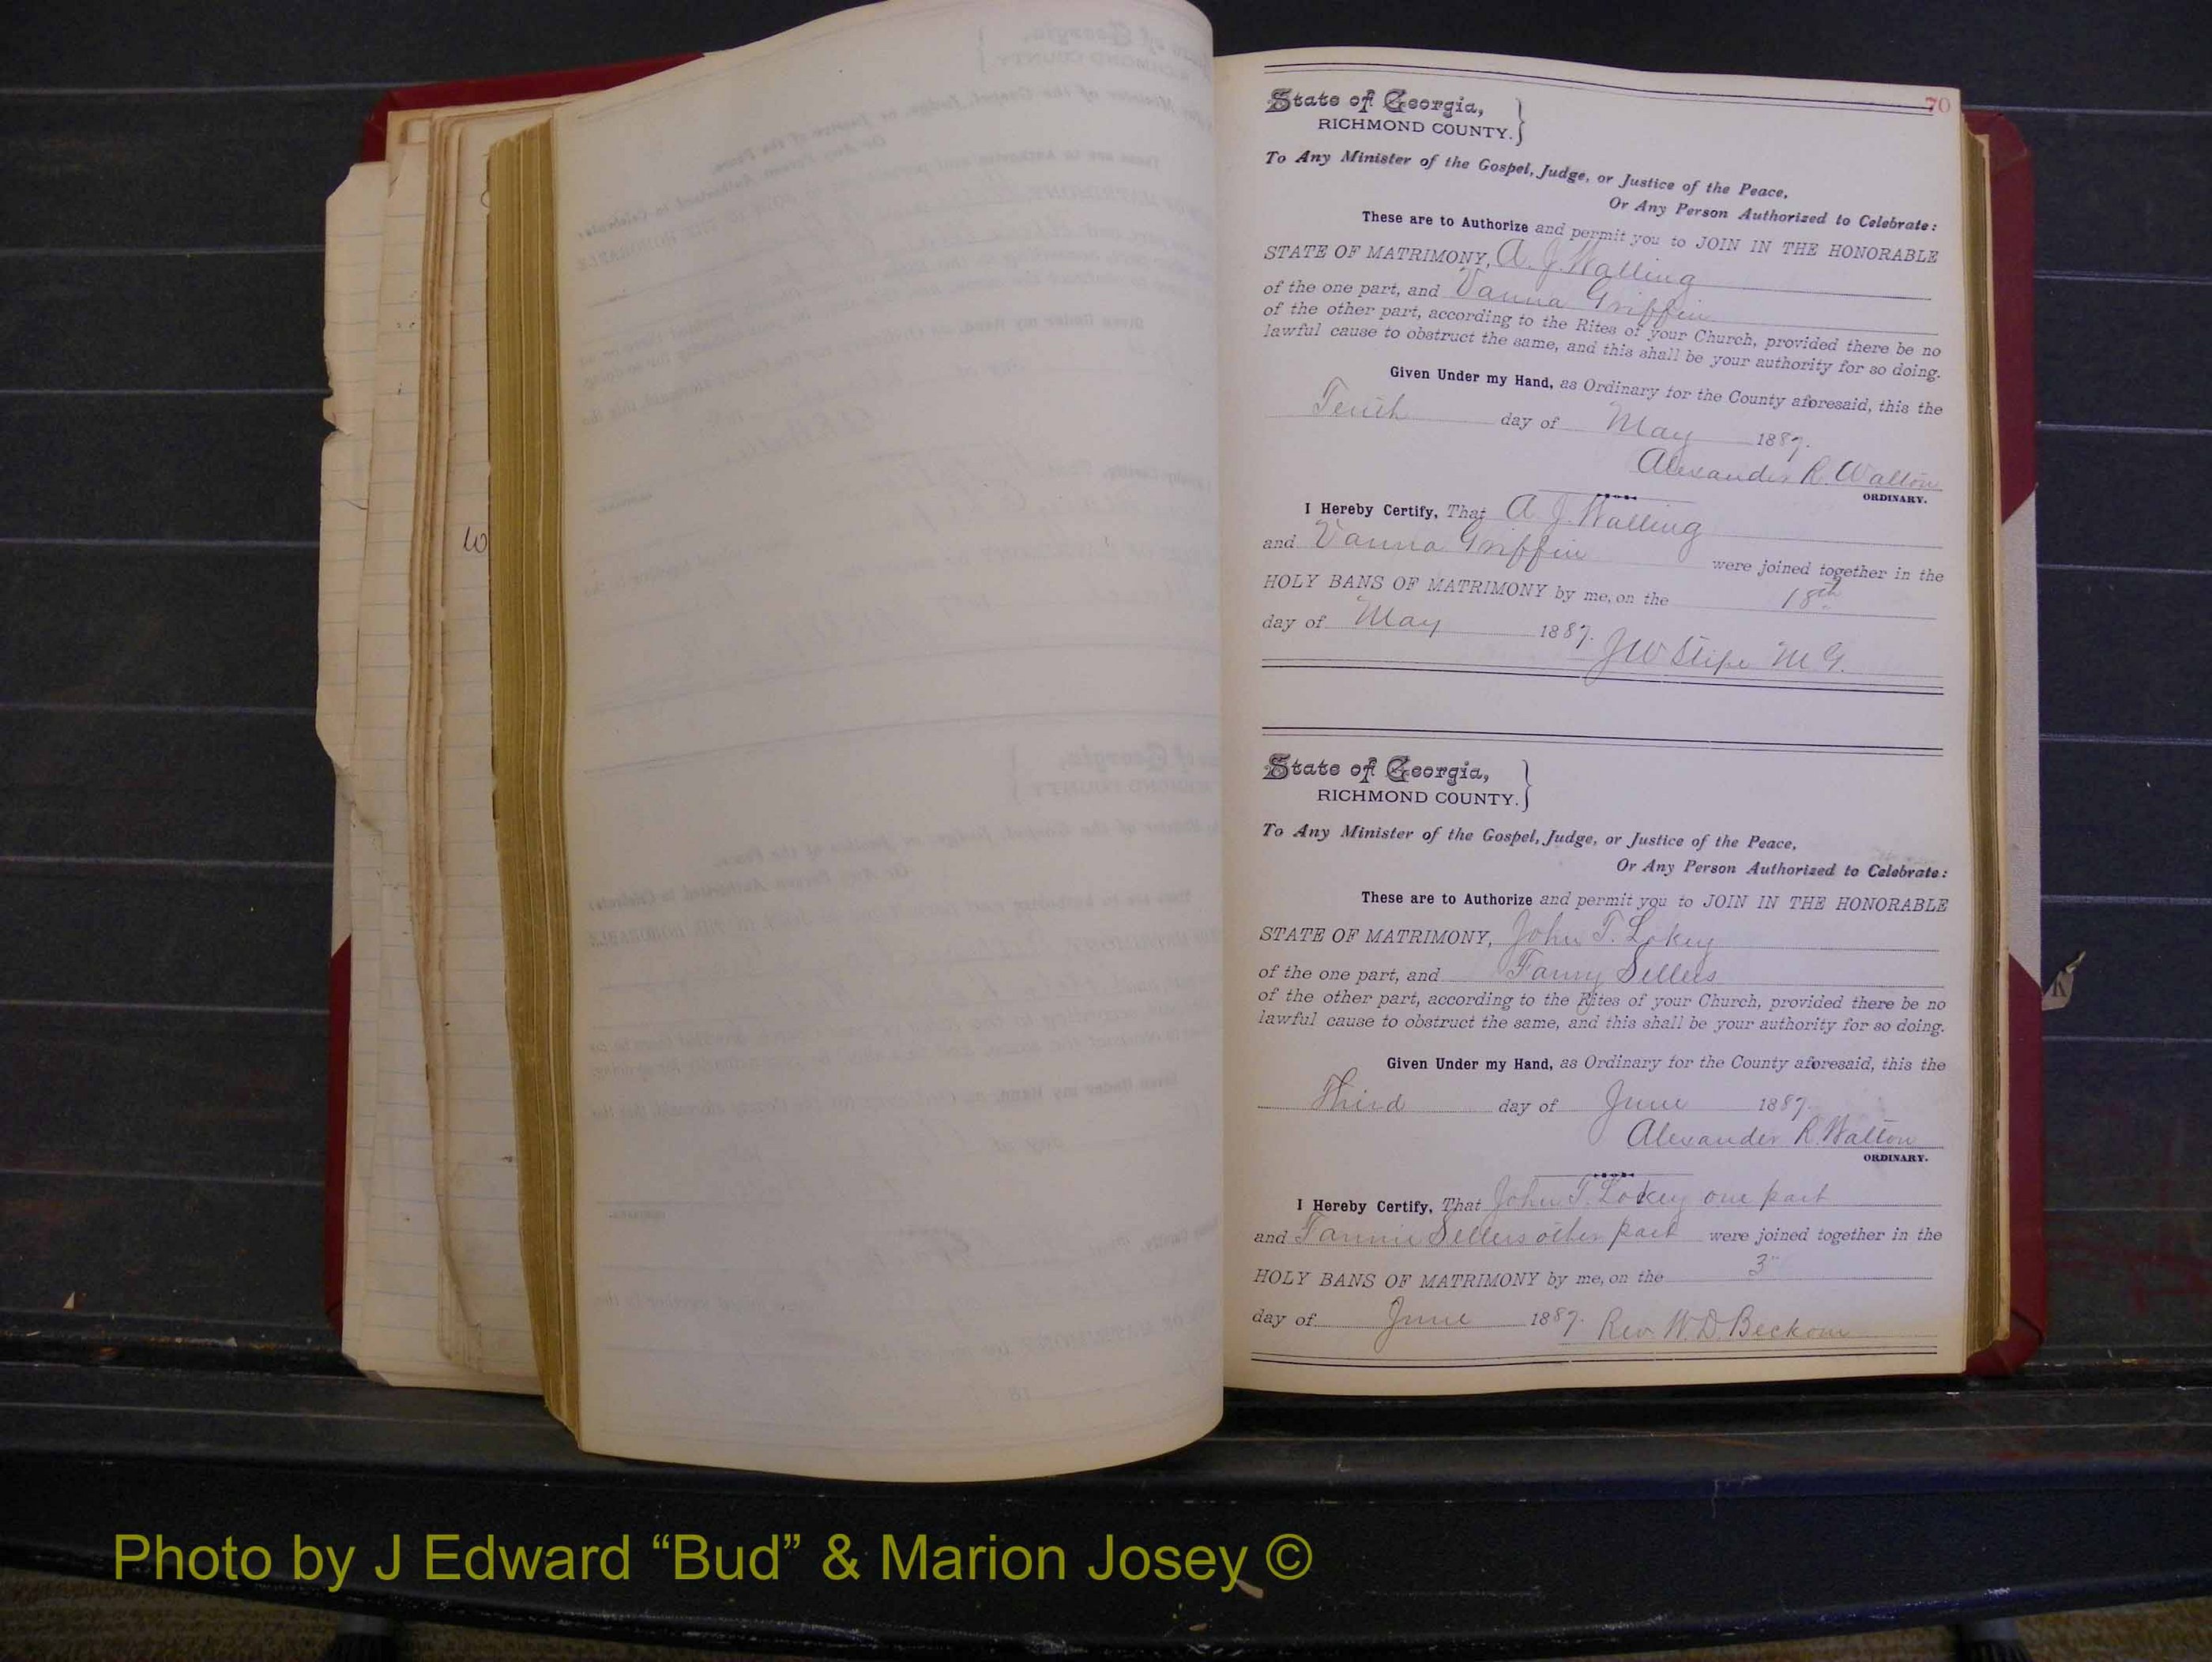 70
State of Georgia,
RICHMOND COUNTY.
To Any Minister of the Gospel, Judge, or Justice of the Peace,
Or Any Person Authorized to Celebrate:
These are to Authorize and permit you to JOIN IN THE HONORABLE
STATE OF MATRIMONY, A. J. Walling
of the one part, and Vanna Griffin
of the other part, according to the Rites of your Church, provided there be no
lawful cause to obstruct the same, and this shall be your authority for so doing.
Given Under my Hand, as Ordinary for the County aforesaid, this the
Tenth day of May 1887.
Alexander R. Walton
ORDINARY.
I Hereby Certify, That A. J. Walling
and Vanna Griffin were joined together in the
HOLY BANS OF MATRIMONY by me, on the 18th
day of May 1887. J W Stipe M G.
State of Georgia,
RICHMOND COUNTY.
To Any Minister of the Gospel, Judge, or Justice of the Peace,
Or Any Person Authorized to Celebrate:
These are to Authorize and permit you to JOIN IN THE HONORABLE
STATE OF MATRIMONY, John T. Lokey
of the one part, and Fanny Sellers
of the other part, according to the Rites of your Church, provided there be no
lawful cause to obstruct the same, and this shall be your authority for so doing.
Given Under my Hand, as Ordinary for the County aforesaid, this the
Third day of June 1887.
Alexander R. Walton
ORDINARY.
I Hereby Certify, That John T. Lokey one part
and Fannie Sellers other part were joined together in the
HOLY BANS OF MATRIMONY by me, on the 3"
day of June 1887. Rev. W. D. Beckom
Photo by J Edward “Bud” & Marion Josey ©